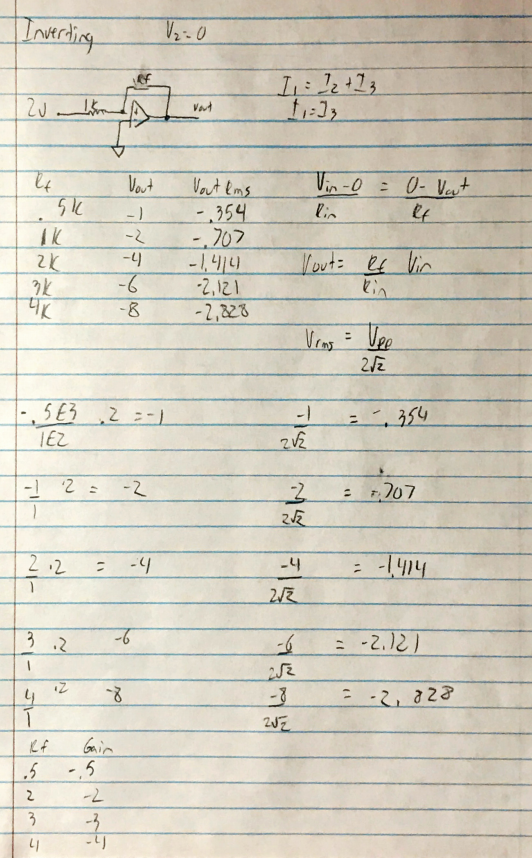 Inverting V₂=0
Rf
2V 1K Vout
I₁ = I₂ + I₃
I₁ = I₃
Rf Vout Vout Rms
.5K -1 -.354
1K -2 -.707
2K -4 -1.414
3K -6 -2.121
4K -8 -2.828
Vin-0 / Rin = 0-Vout / Rf
Vout = Rf / Rin Vin
Vrms = Vpp / 2√2
-.5E3 / 1E2 .2 = -1 -1 / 2√2 = -.354
-1 / 1 ·2 = -2 -2 / 2√2 = -.707
2 / 1 ·2 = -4 -4 / 2√2 = -1.414
3 / 1 ·2 -6 -6 / 2√2 = -2.121
4 / 1 ·2 -8 -8 / 2√2 = -2,828
Rf Gain
.5 -.5
2 -2
3 -3
4 -4